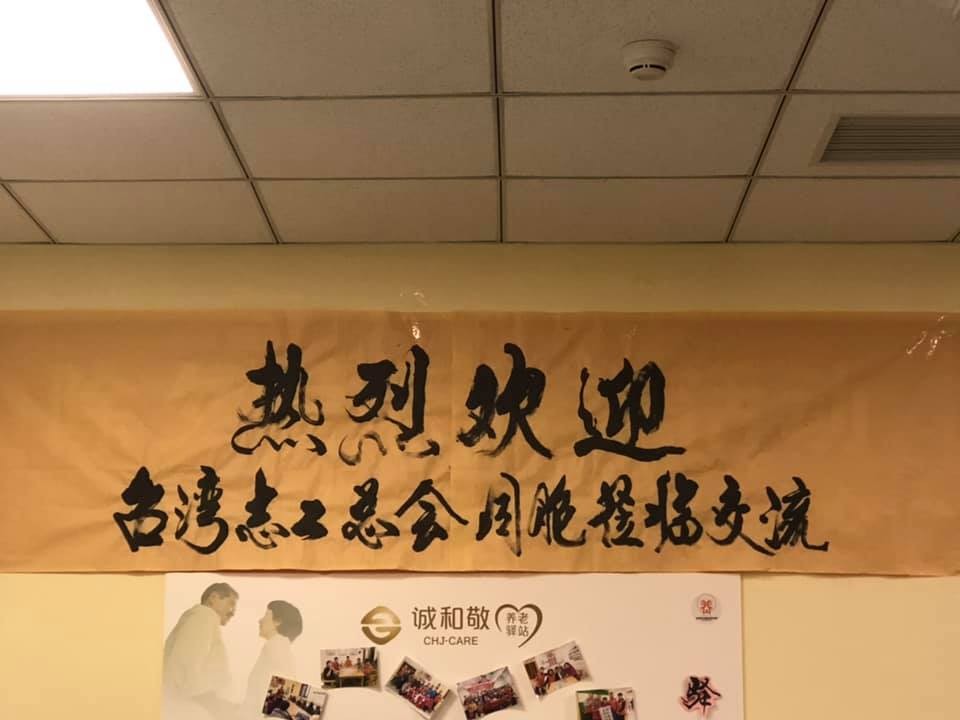 热烈欢迎
台湾志工总会同胞莅临交流
诚和敬
CHJ-CARE
养老
驿站
养
驿